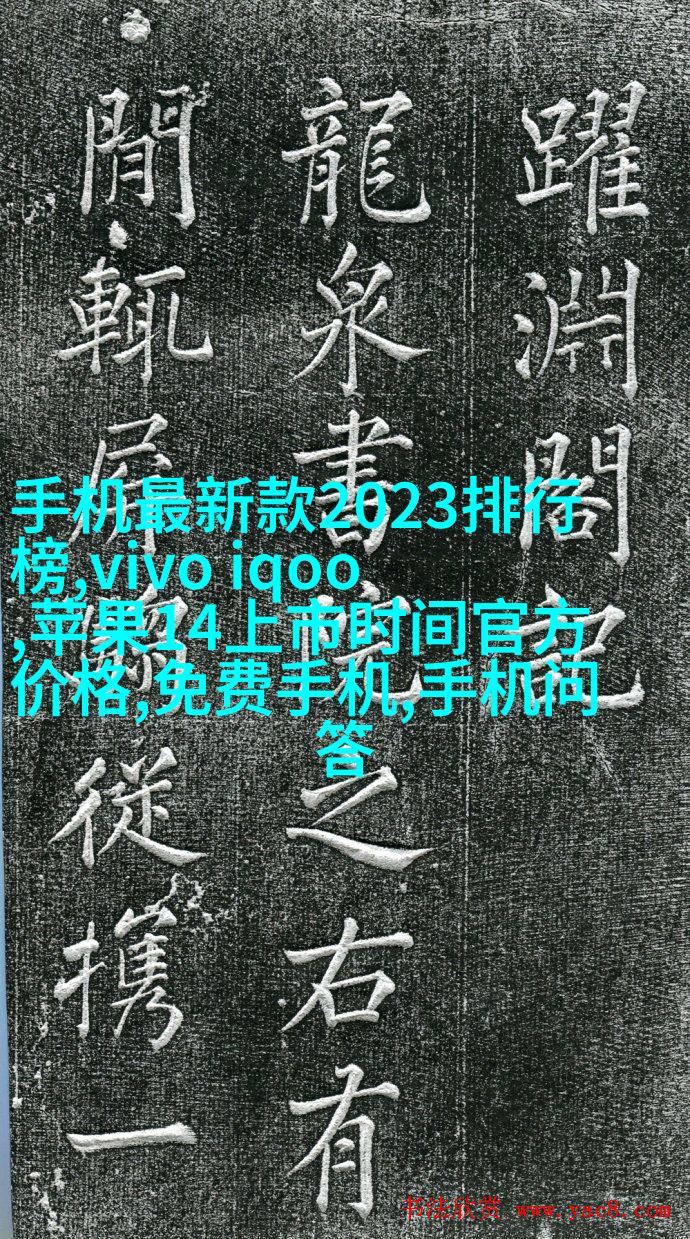 躍淵閣記
龍泉書院之右有
閒輒屏從攜一
手机最新款2023排行
榜,vivo iqoo
,苹果14上市时间官方
价格,免费手机,手机问
答
书法欣赏 www.yac8.com